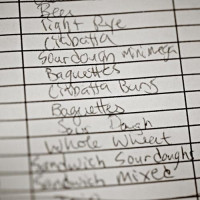 Beer
Light Rye
Cibatta
Sourdough Mini
Baguettes
Cibatta Buns
Baguettes
Dough
Whole Wheat
Sandwich Sourdough
Sandwich Mixed